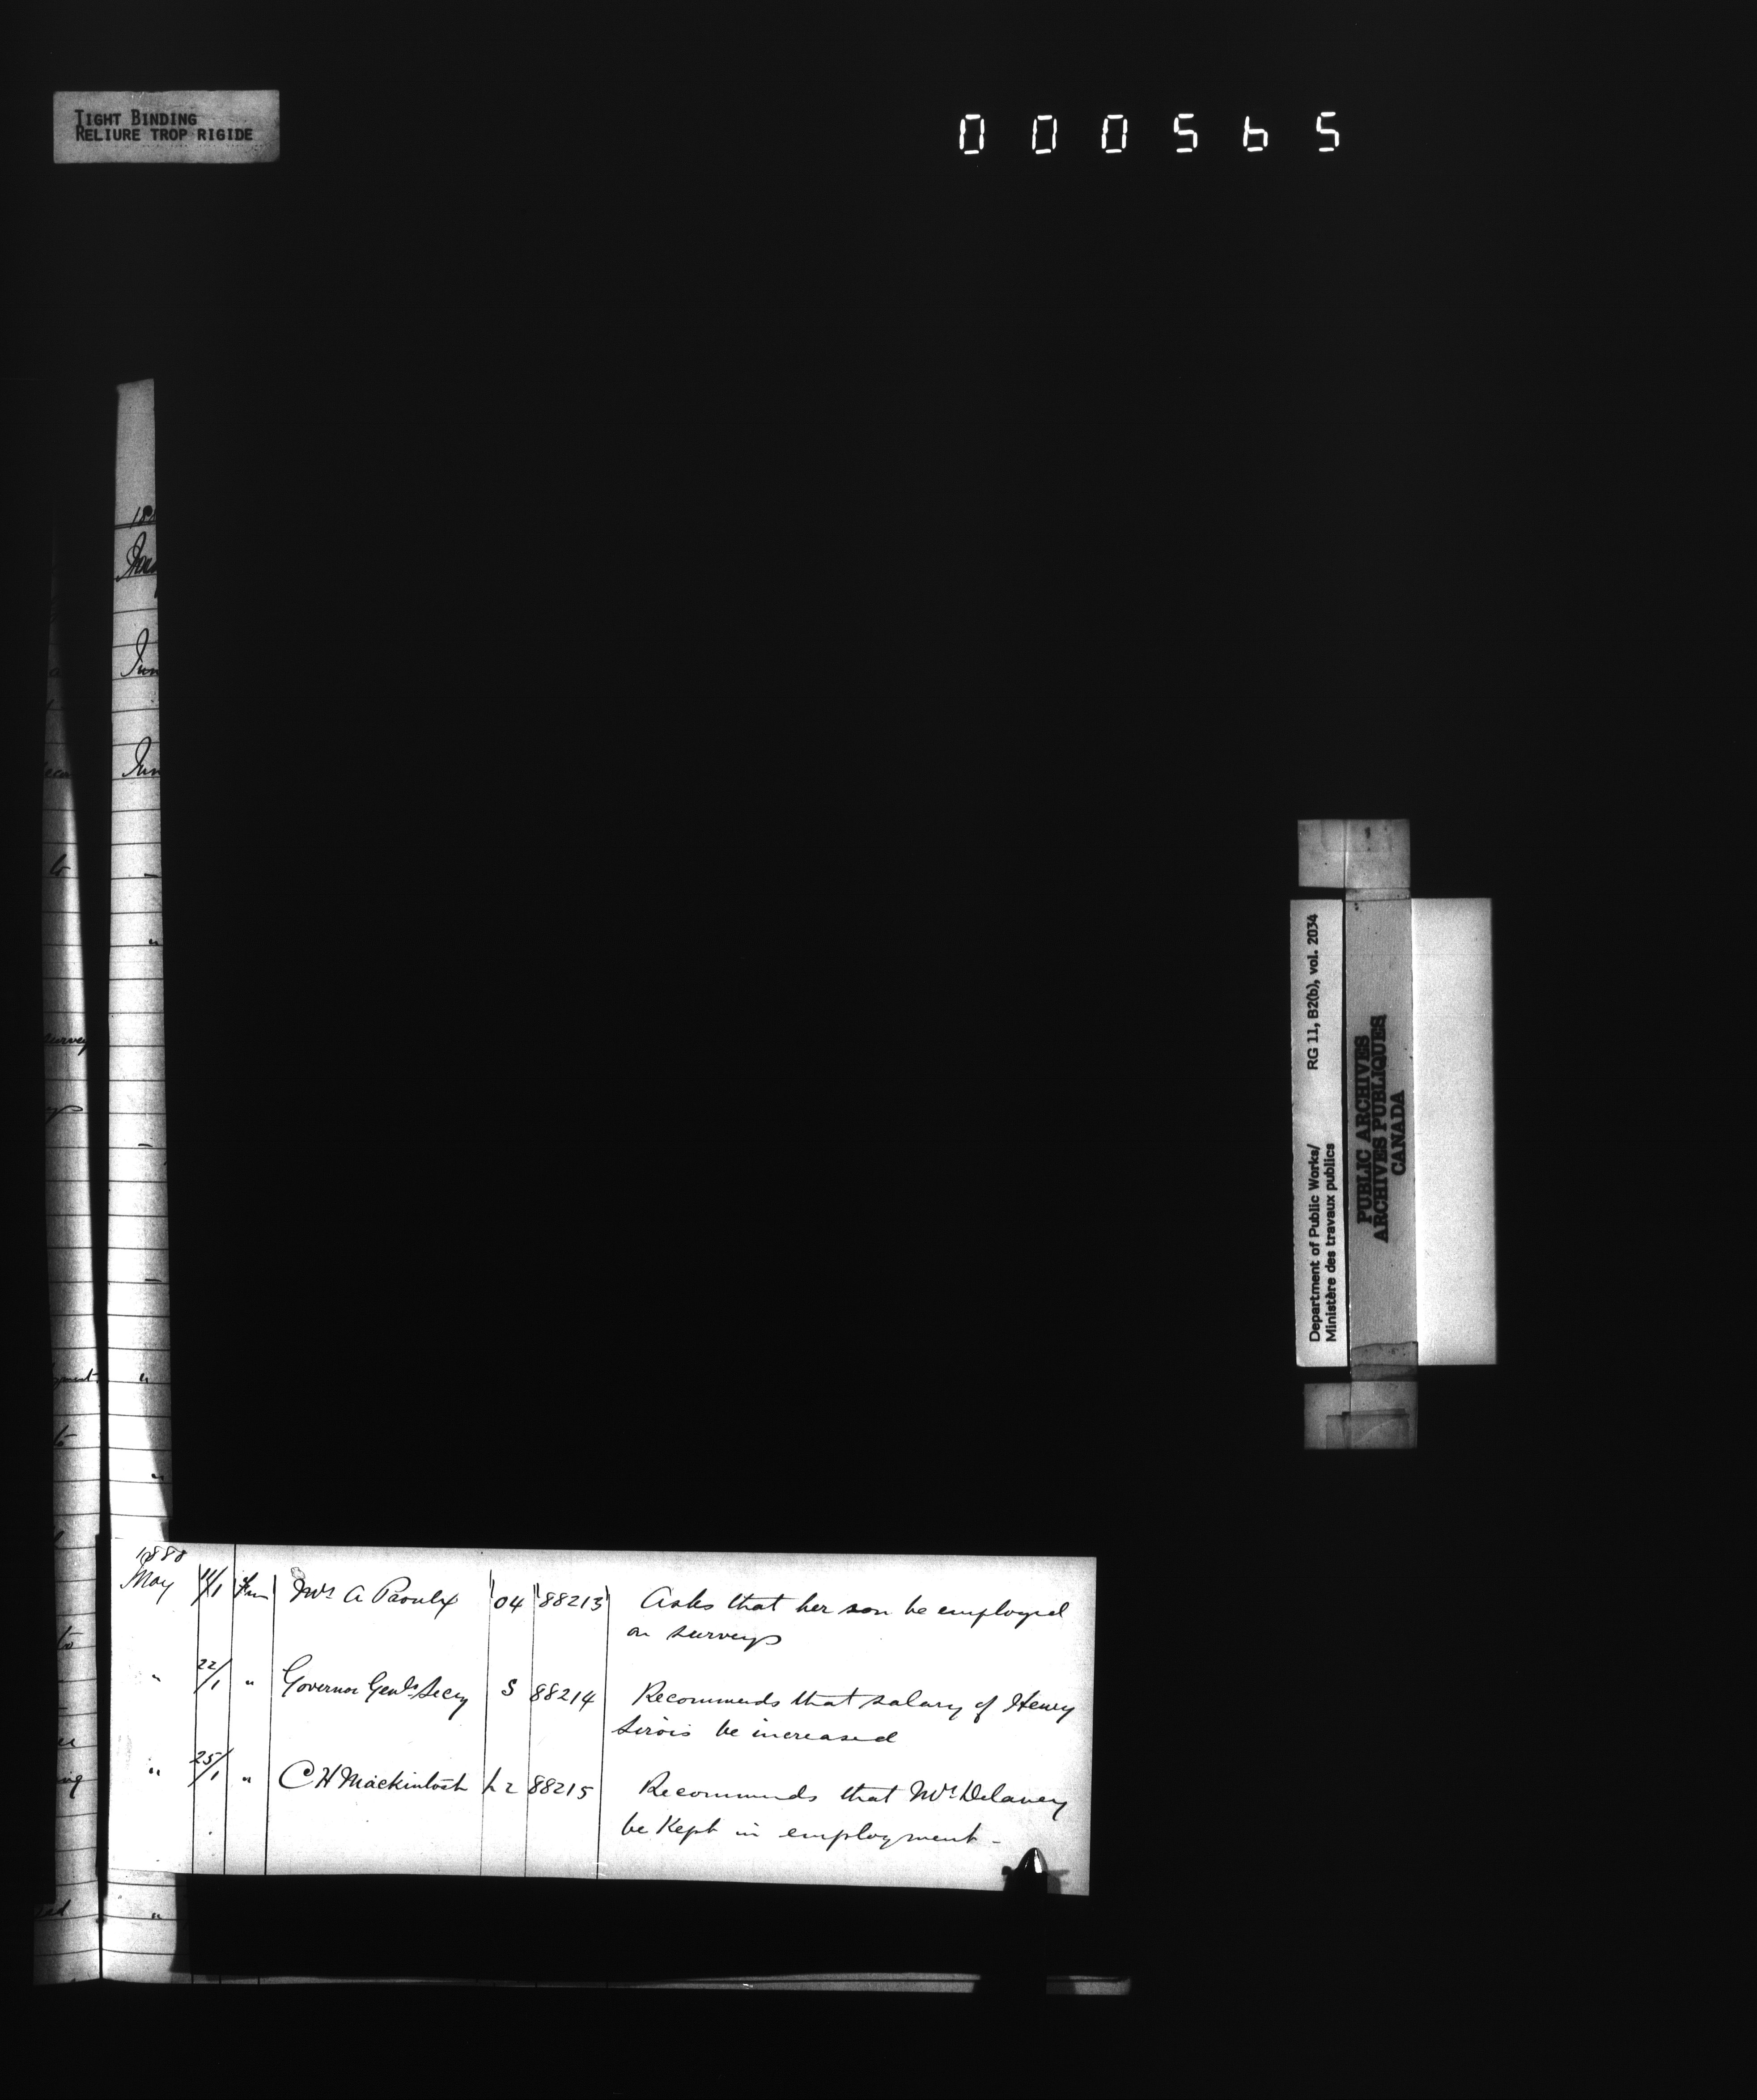 TIGHT BINDING
RELIURE TROP RIGIDE
000565
Jun
Jun
to
survey
to
to
1888
May 11/1 Jun Mrs A Paoulx 04 88213 Asks that her son be employed
on surveys
" 22/1 " Governor Genls Secy S 88214 Recommends that salary of Henry
Sirois be increased
" 25/1 " C H Mackintosh 88215 Recommends that Mr Delaney
be Kept in employment -
Department of Public Works/ RG 11, B2(b), vol. 2034
Ministère des travaux publics
PUBLIC ARCHIVES
ARCHIVES PUBLIQUES
CANADA